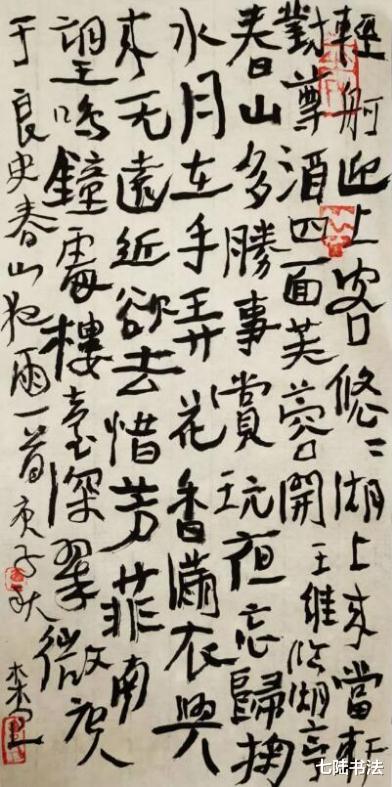 輕舸迎上客悠〻湖上來當軒
對尊酒四面芙蓉開 王維臨湖亭
春山多勝事賞玩夜忘歸掬
水月在手弄花香滿衣興
來无遠近欲去惜芳菲南
望鳴鐘處樓臺深翠微 唐人
于良史春山夜雨一首 庚子秋
七陆书法